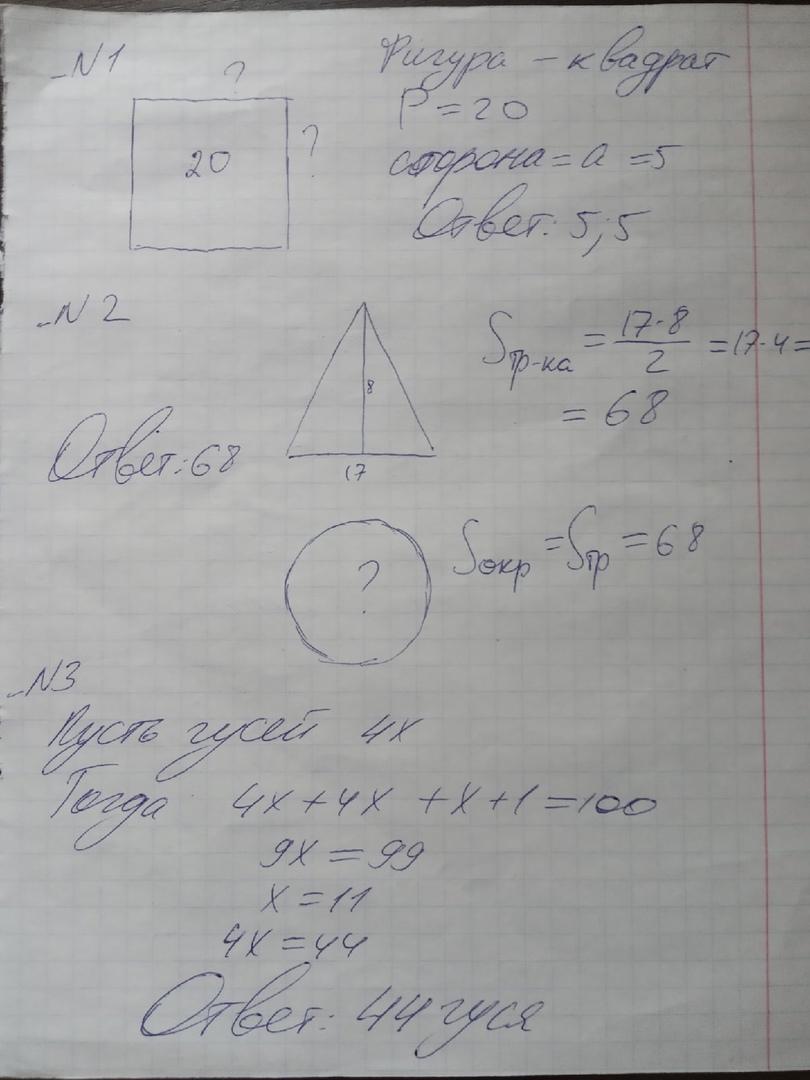 N1
?
20
?
Фигура – квадрат
P = 20
сторона = a = 5
Ответ: 5; 5
N2
8
17
Sтр-ка = 17·8/2 = 17·4 =
= 68
Ответ: 68
?
Sокр = Sтр = 68
N3
Пусть гусей 4x
Тогда 4x + 4x + x + 1 = 100
9x = 99
x = 11
4x = 44
Ответ: 44 гуся